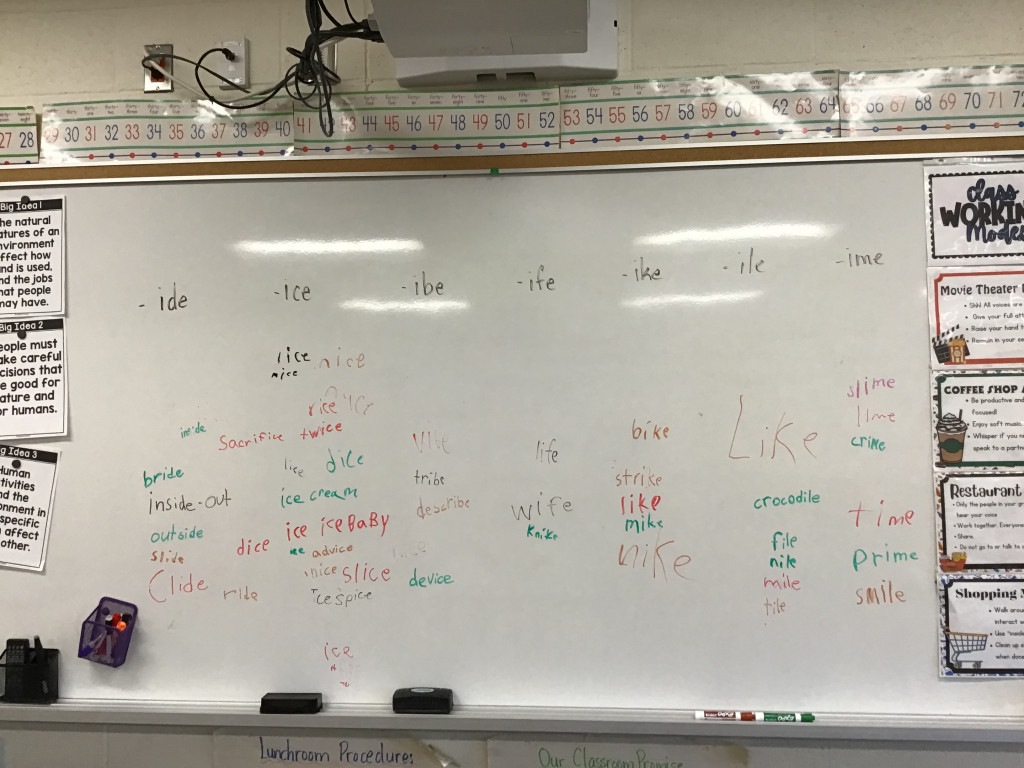 27 28 29 30 31 32 33 34 35 36 37 38 39 40 41 43 44 45 46 47 48 49 50 51 52 53 54 55 56 57 58 59 60 61 62 63 64 65 66 67 68 69 70 71 72
Big Idea 1
he natural
atures of an
nvironment
ffect how
nd is used,
nd the jobs
hat people
may have.
Big Idea 2
eople must
ake careful
cisions that
e good for
ature and
or humans.
g Idea 3
Human
tivities
nd the
onment in
specific
affect
other.
- ide
inside
bride
inside-out
outside
slide
Clide
ride
-ice
lice nice
mice
rice
Sacrifice twice
lice dice
ice cream
dice ice ice BaBy
advice
nice slice
Ice spice
ice
-ibe
Vibe
tribe
describe
device
-ife
life
wife
Knike
-ike
bike
strike
like
mike
nike
-ile
LiKe
crocodile
file
nile
mile
tile
-ime
slime
lime
crime
time
Prime
smile
Class
WORKIN
Modes
Movie Theater
Shh! All voices are
Give your full att
Raise your hand t
Remain in your se
COFFEE SHOP
Be productive and
focused!
Enjoy soft music.
Whisper if you
speak to a partn
Restaurant
Only the people in your g
hear your voice
Work together. Everyone
Share.
Do not go to or talk to
Shopping
Walk aroun
interact w
Use "inside
Clean up
when done
EXPO
EXPO
Lunchroom Procedures
Our Classroom Promise